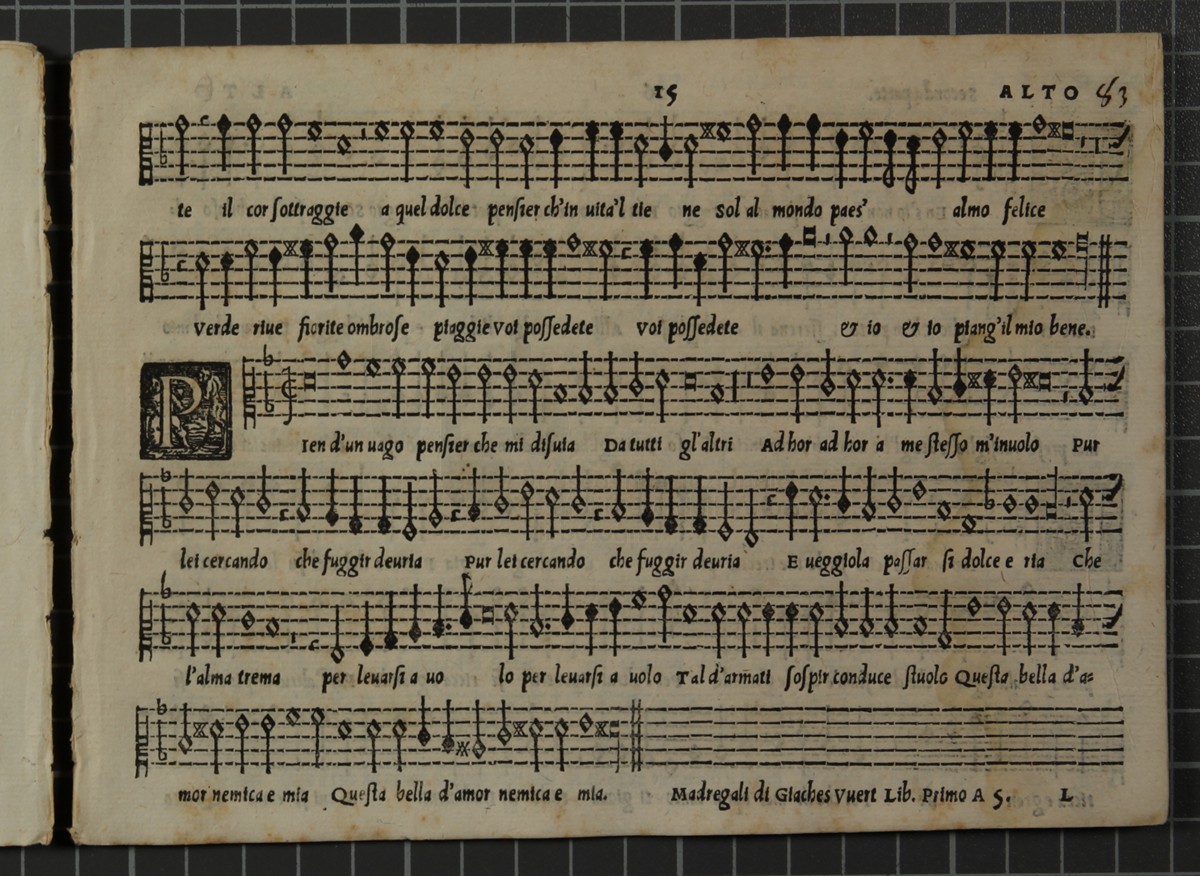 15 ALTO 83
te il cor sottraggie a quel dolce pensier ch'in uita'l tie ne sol al mondo paes' almo felice
verde riue fiorite ombrose piaggie voi possedete voi possedete & io & io piang'il mio bene.
P
Ien d'un uago pensier che mi disuia Da tutti gl'altri Ad hor ad hor a me stesso m'inuolo Pur
lei cercando che fuggir deuria Pur lei cercando che fuggir deuria E ueggiola passar si dolce e ria Che
l'alma trema per leuarsi a uo lo per leuarsi a uolo Tal d'armati sospir conduce stuolo Questa bella d'a=
mor nemica e mia Questa bella d'amor nemica e mia. Madregali di Giaches Vuert Lib. Primo A 5. L